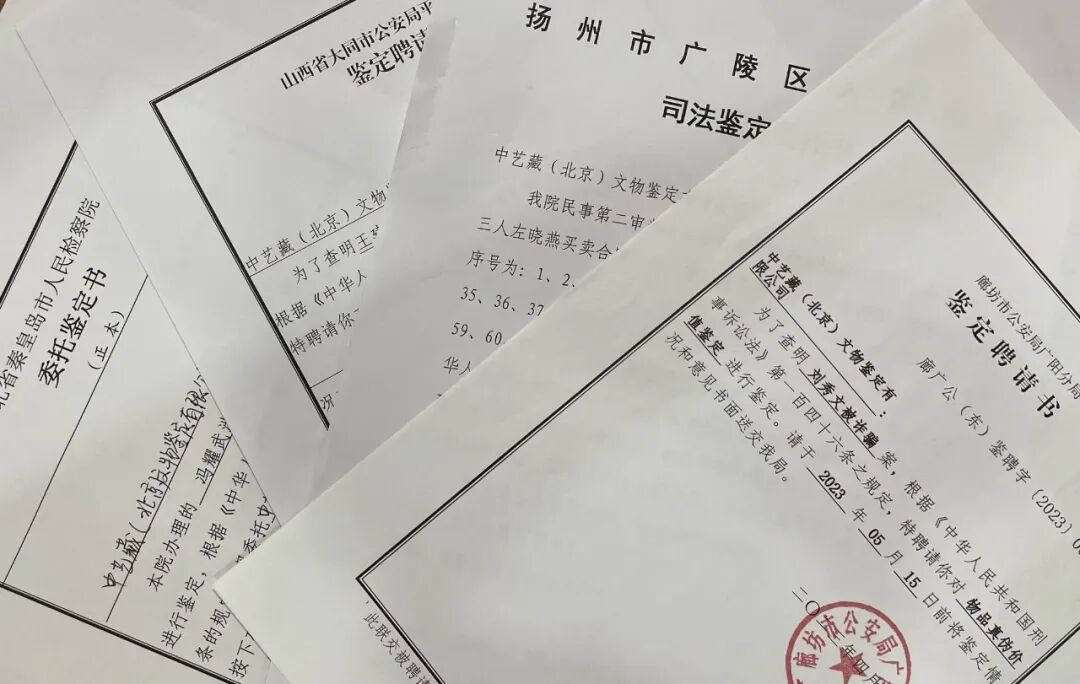 北省秦皇岛市人民检察院
委托鉴定书
（正本）
中艺藏（北京）文物鉴定有限
本院办理的 冯耀武
进行鉴定，根据《中华
条的规
委托
按下
山西省大同市公安局平
鉴定聘请
中艺藏（北京）文物
为了查明王
根据《中华人
特聘请你
扬州市广陵区
司法鉴定
中艺藏（北京）文物鉴定
我院民事第二审
三人左晓燕买卖合
序号为：1、2、
35、36、37
59、60
华人
廊坊市公安局广阳分局
鉴定聘请书
廊广公（东）鉴聘字〔2023〕0
中艺藏（北京）文物鉴定有
限公司：
为了查明 刘秀文被诈骗 案，根据《中华人民共和国刑
事诉讼法》第一百四十六条之规定，特聘请你对 物品真伪价
值鉴定 进行鉴定。请于 2023 年 05 月 15 日前将鉴定情
况和意见书面送交我局。
二〇
年四月
廊坊市公安局广
此联交被聘请